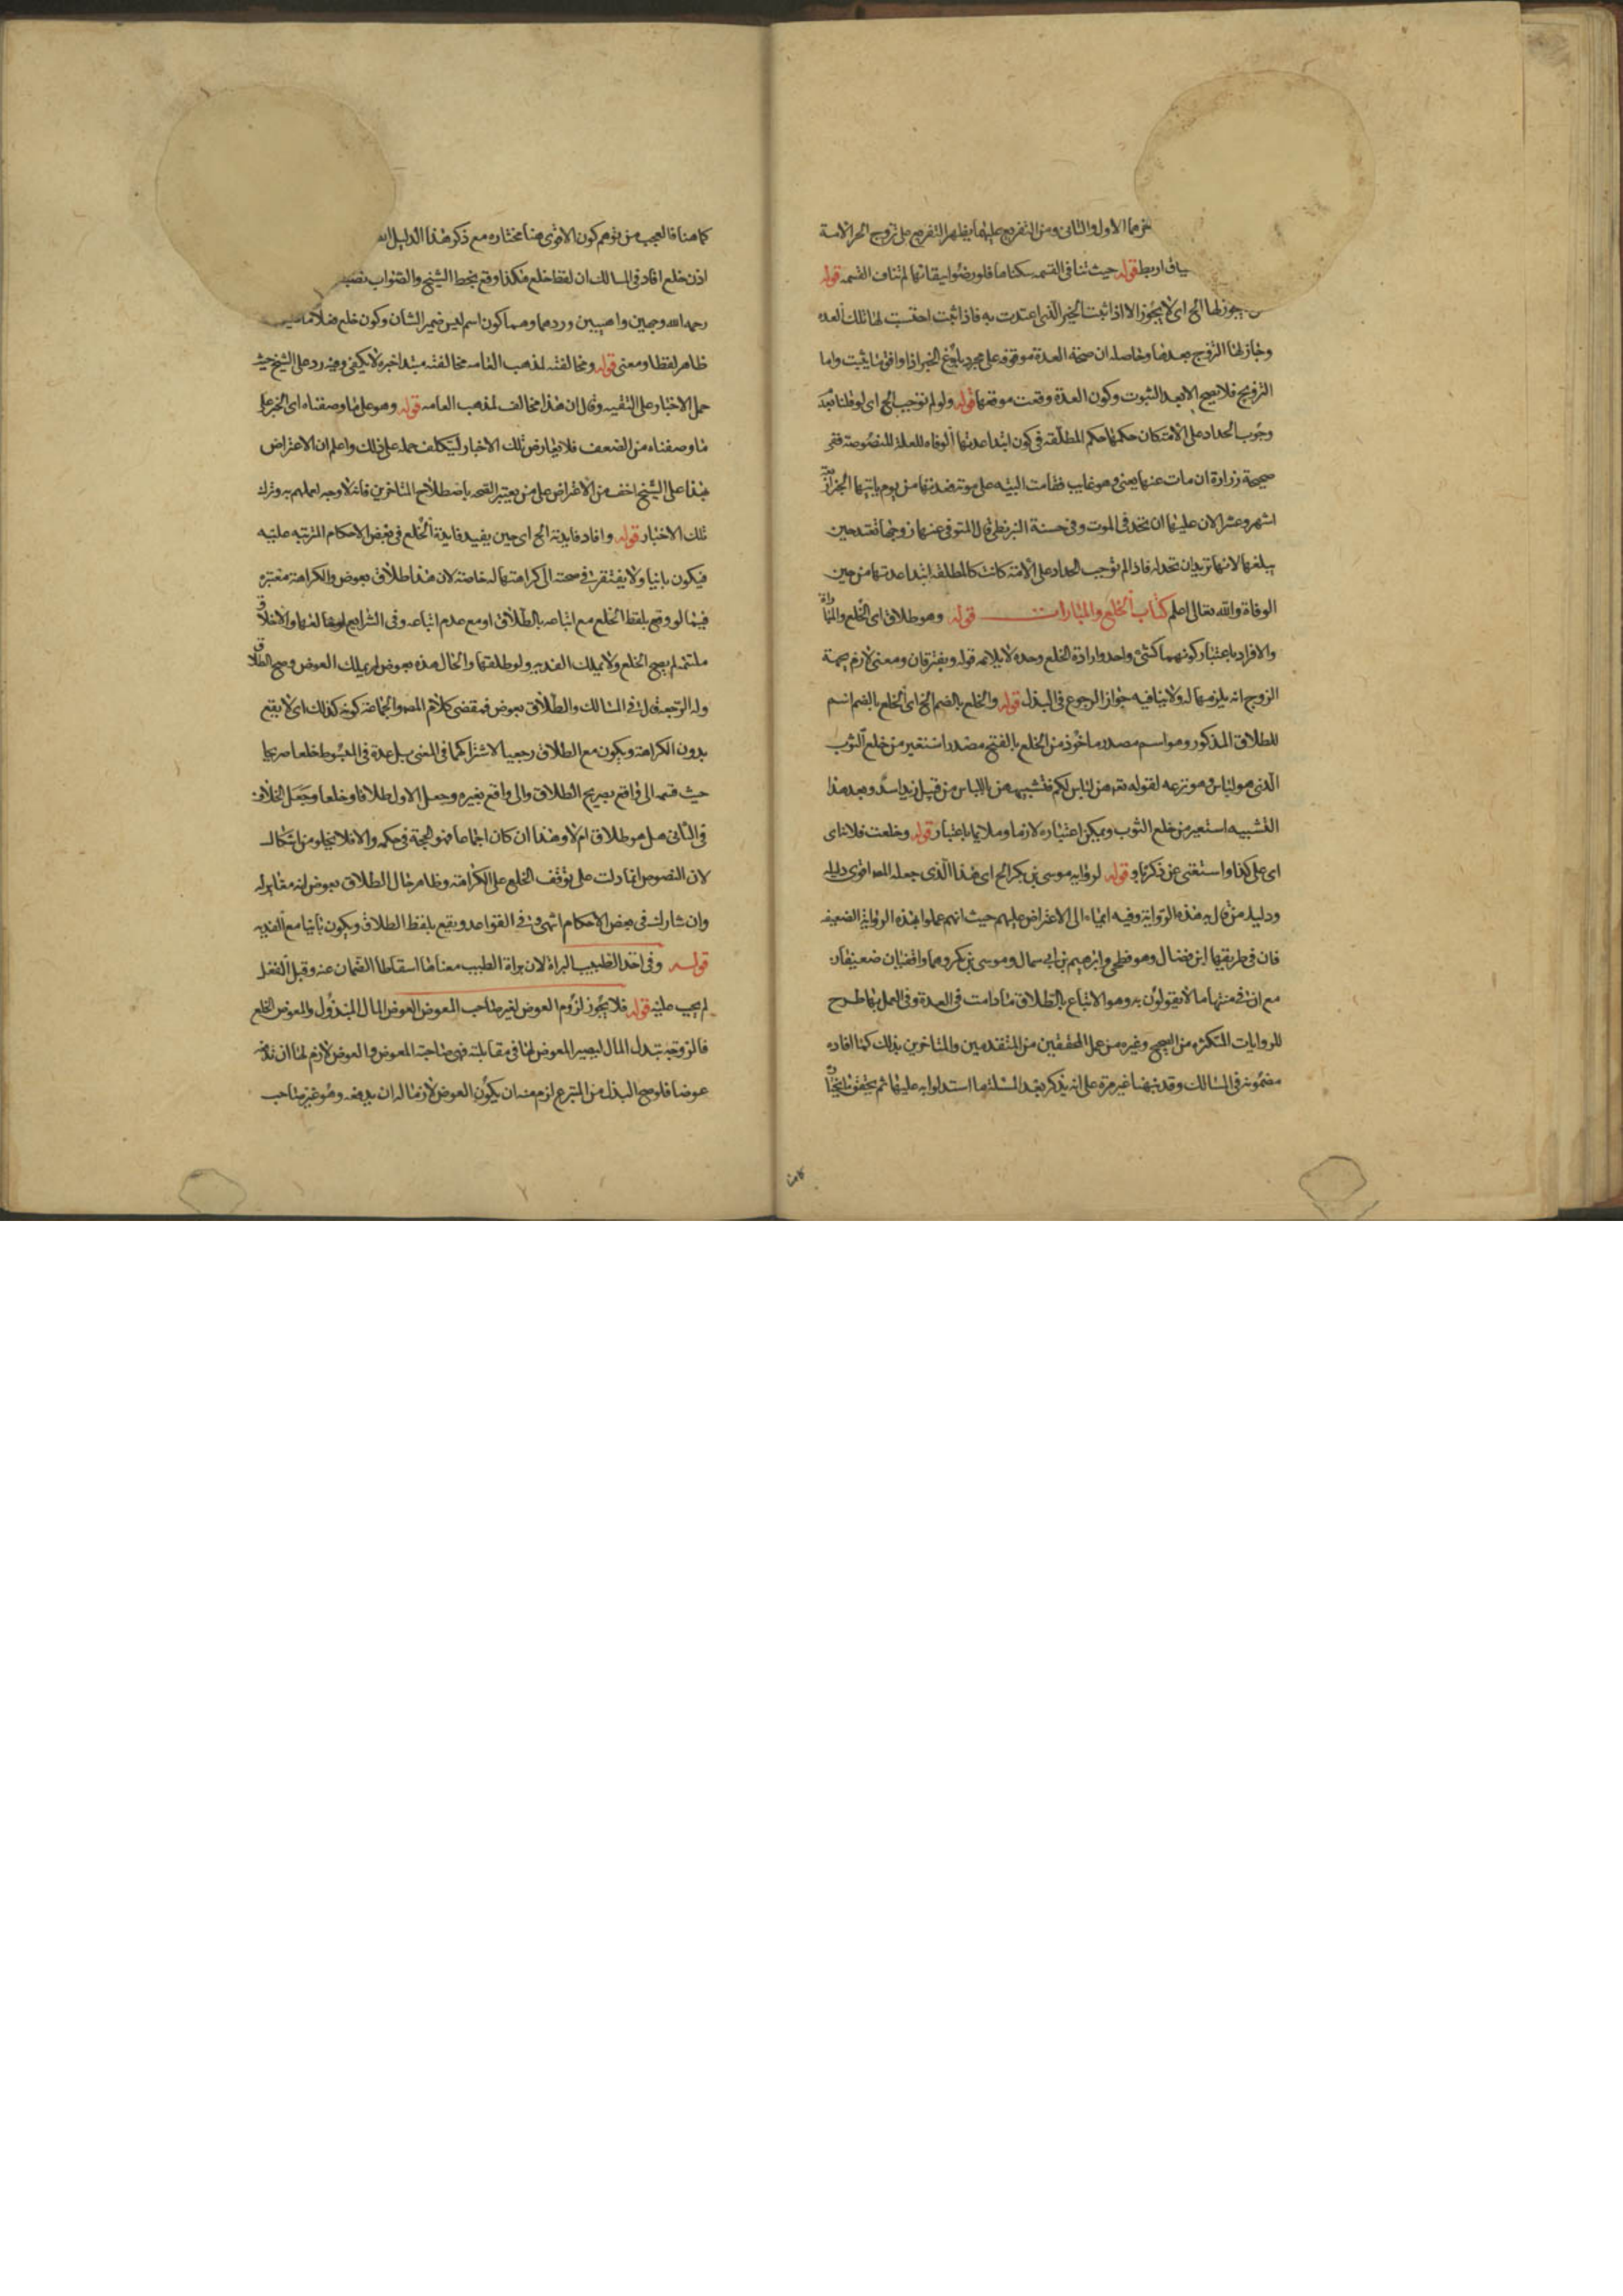 الاول والثانى ومن التفريع عليهما يظهر التفريع على تزويج الحر الامة
قوله حيث تنافى القسمه سكناها فلو رضوا ببقائها لم تناف القسمه قوله
يجوز لها الخ اى لا يجوز الا اذا ثبت الخبر الذى اعتدت به فاذا ثبت احتسبت لها تلك العده
وجاز لها التزويج بعدها وحاصله ان صحة العدة موقوفه على مجرد بلوغ الخبر اذا وافق ما يثبت واما
التزويج فلا يصح الا بعد الثبوت وكون العدة وقعت موقعها قوله ولو لم نوجب الخ اى لو قلنا بعد
وجوب الحداد على الامة كان حكمها حكم المطلقه فى كون ابتداء عدتها الوفاه للعلة المنصوصة ففى
صحيحة زرارة ان مات عنها يعنى وهو غايب فقامت البينه على موته فعدتها من يوم ياتيها الخبر اربعة
اشهر وعشرا لان عليها ان تحد فى الموت وفى حسنة البزنطى قال المتوفى عنها زوجها تعتد حين
يبلغها لانها تريد ان تحد له فاذا لم نوجب الحداد على الامة كانت كالمطلقه ابتداء عدتها من حين
الوفاة والله تعالى اعلم كتاب الخلع والمبارات قوله وهو طلاق اى الخلع والمباراة
والافراد باعتبار كونهما كشئ واحد وارادة الخلع وحده لا يلايمه قوله ويفترقان ومعنى لازم لجهة
الزوج انه يلزمها له ولا ينافيه جواز الرجوع فى البذل قوله والخلع بالضم الخ اى الخلع بالضم اسم
للطلاق المذكور وهو اسم مصدر ماخوذ من الخلع بالفتح مصدر استعير من خلع الثوب
الذى هو لباس وهو نزعه لقوله تعه هن لباس لكم فتشبيههن باللباس من قبيل زيد اسد وبعد هذا
التشبيه استعير من خلع الثوب ويمكن اعتباره لازما وملايما باعتبار قوله وخلعت فلانا اى
اى على كذا واستغنى عن ذكرها وقوله لروايه موسى بن بكر الخ اى هذا الذى جعله المصـ اقوى دليله
ودليل من قال به هذه الرواية وفيه ايماء الى الاعتراض عليهم حيث انهم عملوا بهذه الرواية الضعيفه
فان فى طريقها ابن فضال وهو فطحى وابرهيم بن ابى سمال وموسى بن بكر وهما واقفيان ضعيفان
مع ان فى متنها ما لا يقولون به وهو الاتباع بالطلاق ما دامت فى العدة وفى العمل بها طرح
للروايات المتكثره من الصحيح وغيره من عمل المحققين من المتقدمين والمتاخرين بذلك كما افاده
مضمونه فى المسالك وقد نبهنا غير مرة على انه يذكر بعد المسئلة ما استدلوا به عليها ثم
كما هنا
كما هنا فالعجب من توهم كون الاقوى هنا مختاره مع ذكر هذا الدليل
اذن خلع افاد فى المسالك ان لفظ خلع هكذا وقع بخط الشيخ والصواب نصبه
رحمه الله وجهين واهيين وردهما وهما كون اسم ليس ضمير الشان وكون خلع فعلا ماضيا
ظاهر لفظا ومعنى قوله ومخالفته لمذهب العامه مخالفته مبتدا خبره لا يكفى وفيه رد على الشيخ حيث
حمل الاخبار على التقيه وقال ان هذا مخالف لمذهب العامه قوله وهو على ما وصفناه اى الخبر على
ما وصفناه من الضعف فلا يعارض تلك الاخبار ليتكلف حمله على ذلك واعلم ان الاعتراض
بهذا على الشيخ اخف من الاعتراض على من يعتبر الصحه باصطلاح المتاخرين فانه لا وجه لعملهم به وترك
تلك الاخبار قوله وافاد فايدته الخ اى حين يفيد فايدة الخلع فى بعض الاحكام المترتبه عليه
فيكون باينا ولا يفتقر فى صحته الى كراهتها له خاصة لان هذا طلاق بعوض والكراهة معتبره
فيما لو وقع بلفظ الخلع مع اتباعه بالطلاق او مع عدم اتباعه وفى الشرايع لو خالعها والاخلاق
ملتئمه لم يصح الخلع ولا يملك الفديه ولو طلقها والحال هذه بعوض لم يملك العوض وصح الطلاق
وله الرجعه قال فى المسالك والطلاق بعوض فمقتضى كلام المصـ والجماعة كونه كذلك اى لا يقع
بدون الكراهة ويكون مع الطلاق رجعيا لاشتراكهما فى المعنى بل عده فى المبسوط خلعا صريحا
حيث قسمه الى واقع بصريح الطلاق والى واقع بغيره وجعل الاول طلاقا وخلعا وجعل الخلاف
فى الثانى هل هو طلاق ام لا وهذا ان كان اجماعا فهو الحجة فى حكمه والا فلا يخلو من اشكال
لان النصوص انما دلت على توقف الخلع على الكراهة وظاهر حال الطلاق بعوض انه مغاير له
وان شاركه فى بعض الاحكام انتهى وفى القواعد ويقع بلفظ الطلاق ويكون باينا مع الفديه
قوله وفى اخذ الطبيب البراة لان براة الطبيب معناها اسقاط الضمان عنه وقبل الفعل
لم يجب عليه قوله فلا يجوز لزوم العوض لغير صاحب المعوض العوض المال المبذول والمعوض الخلع
فالزوجة تبذل المال ليصير المعوض لها فى مقابلته فهى صاحبة المعوض والعوض لازم لها ان تدفعه
عوضا فلو صح البذل من المتبرع لزم منه ان يكون العوض لازما له ان يدفعه وهو غير صاحب